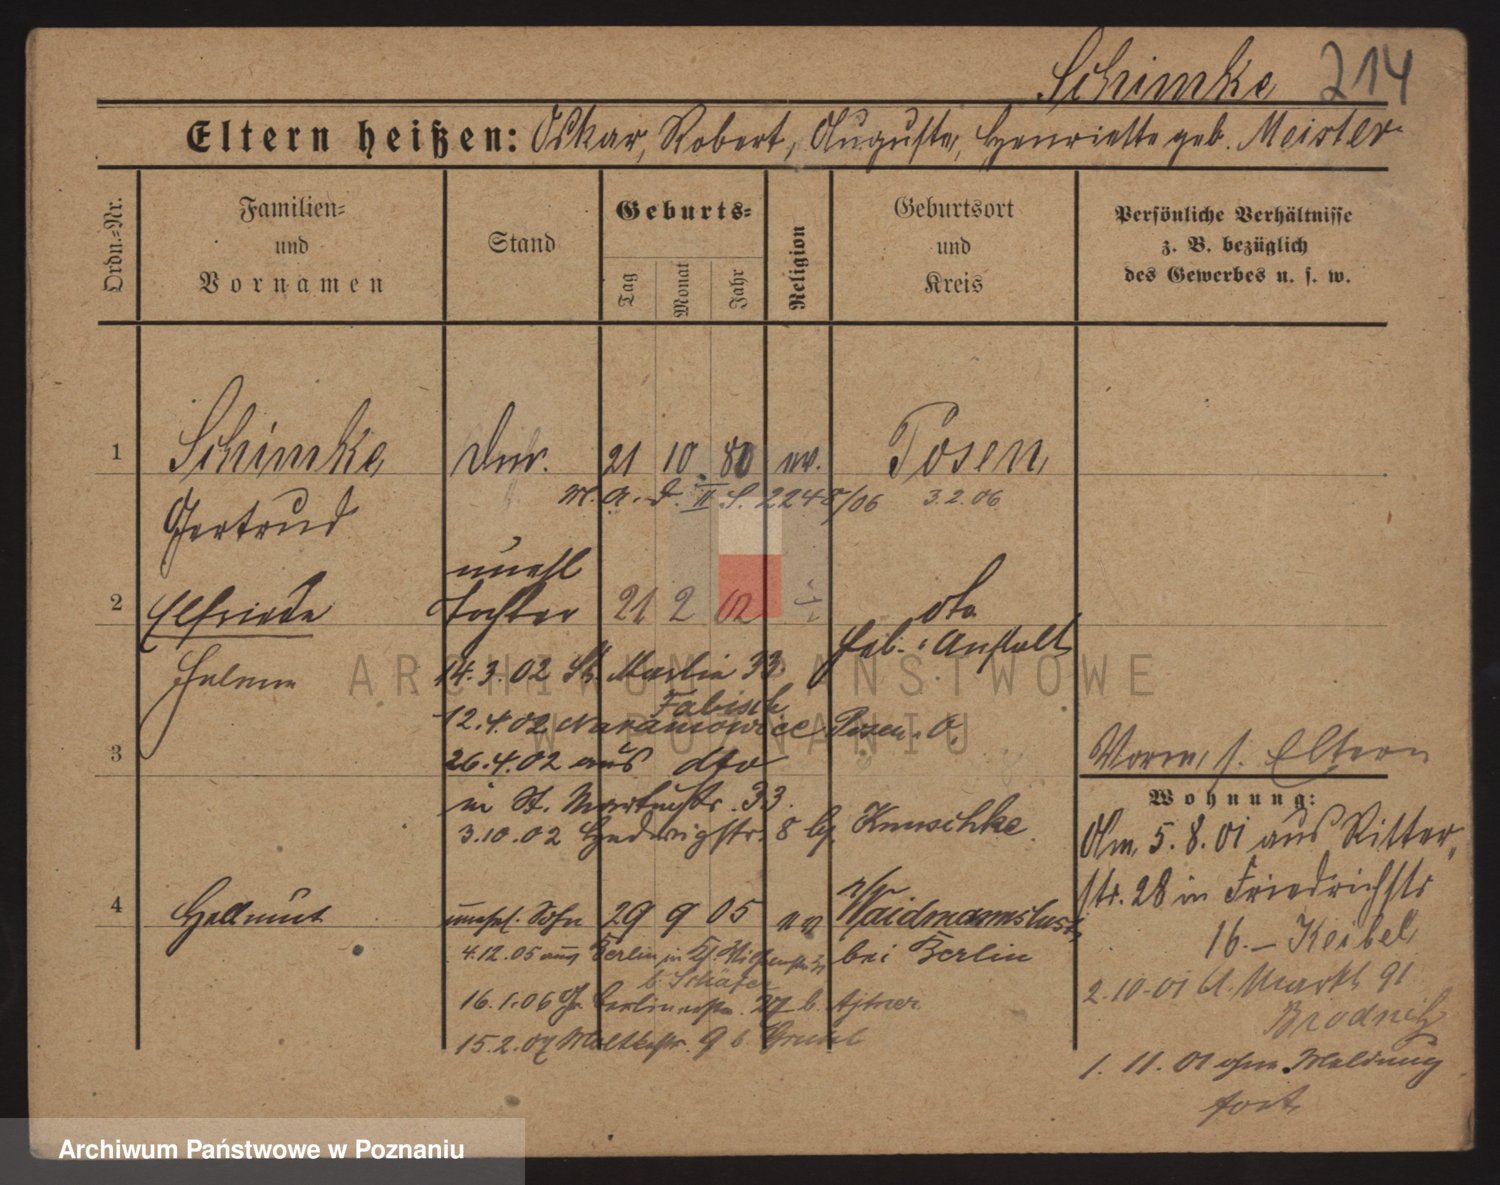 Schimke 214
Eltern heißen: Oskar, Robert, Auguste, Henriette geb. Meister
Ordn.=Nr.
Familien=
und
Vornamen
Stand
Geburts=
Tag Monat Jahr
Religion
Geburtsort
und
Kreis
Persönliche Verhältnisse
z. B. bezüglich
des Gewerbes u. s. w.
1 Schimke 21 10. 80 ev. Posen
Gertrud
M. A. d. II S. 2248/06 3.2.06
unehl
2 Elfriede Tochter 21 2 02 dto
Helene Heb. Anstalt
14.3.02 St. Martin 33.
Fabisch
12.4.02 Naramowice Posen O.
3 26.4.02 aus dto
in St. Martinstr. 33.
3.10.02 Hedwigstr. 8 bei Knuschke
4 Hellmut unehel. Sohn 29 9 05 ev Waidmannslust
4.12.05 aus Berlin in bei Berlin
b. Schäfer
16.1.06 Gr. Berlinerstr. 27 b.
15.2.07 Moltkestr. 9 b.
Vorm. s. Eltern
Wohnung:
Am 5.8.01 aus Ritter
str. 28 in Friedrichstr
16. – Keibel
2.10.01 A. Markt 91
Brodnitz
1. 11. 01 ohne Meldung
fort.
ARCHIWUM PAŃSTWOWE
W POZNANIU
Archiwum Państwowe w Poznaniu